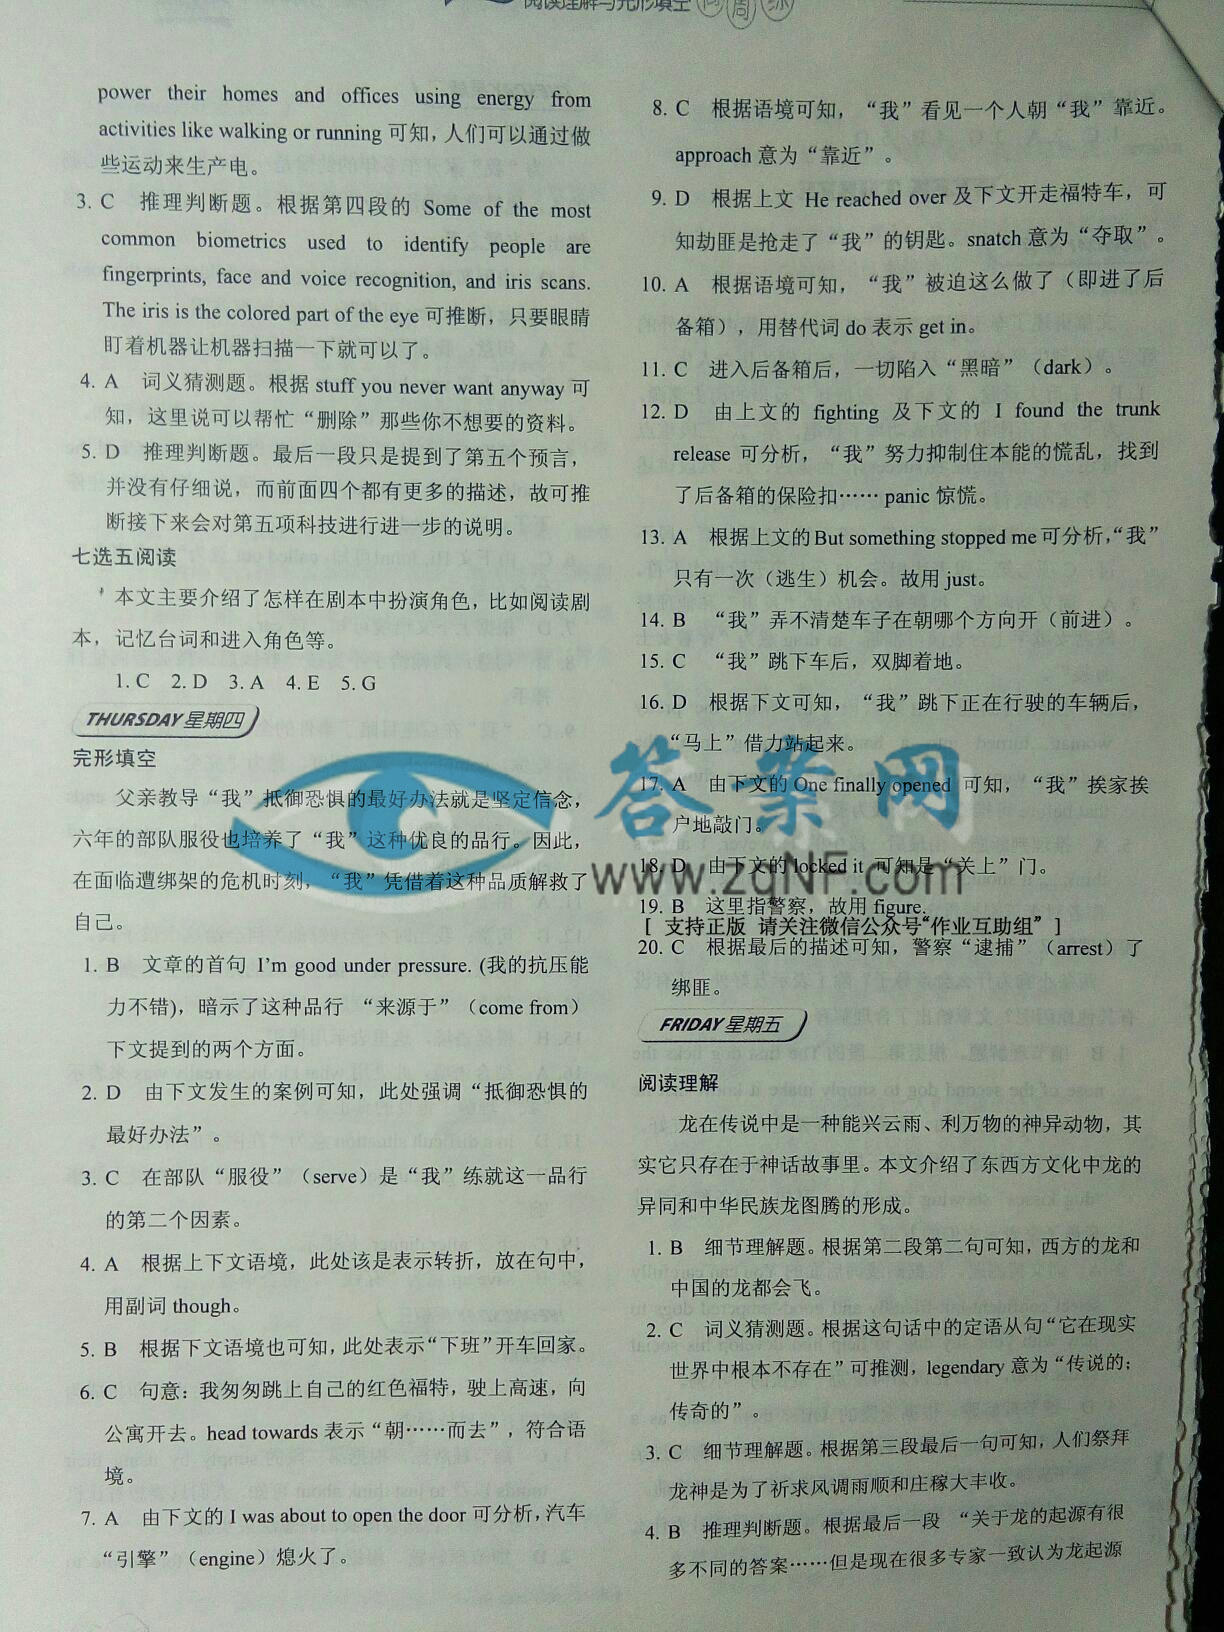 阅读理解与完形填空
周
power their homes and offices using energy from
activities like walking or running 可知,人们可以通过做
些运动来生产电。
3. C 推理判断题。根据第四段的 Some of the most
common biometrics used to identify people are
fingerprints, face and voice recognition, and iris scans.
The iris is the colored part of the eye 可推断，只要眼睛
盯着机器让机器扫描一下就可以了。
4. A 词义猜测题。根据 stuff you never want anyway 可
知，这里说可以帮忙“删除”那些你不想要的资料。
5. D 推理判断题。最后一段只是提到了第五个预言，
并没有仔细说，而前面四个都有更多的描述，故可推
断接下来会对第五项科技进行进一步的说明。
七选五阅读
本文主要介绍了怎样在剧本中扮演角色，比如阅读剧
本，记忆台词和进入角色等。
1. C 2. D 3. A 4. E 5. G
THURSDAY 星期四
完形填空
父亲教导“我”抵御恐惧的最好办法就是坚定信念，
六年的部队服役也培养了“我”这种优良的品行。因此，
在面临遭绑架的危机时刻，“我”凭借着这种品质解救了
自己。
1. B 文章的首句 I'm good under pressure. (我的抗压能
力不错)，暗示了这种品行 “来源于”（come from）
下文提到的两个方面。
2. D 由下文发生的案例可知，此处强调“抵御恐惧的
最好办法”。
3. C 在部队“服役”（serve）是“我”练就这一品行
的第二个因素。
4. A 根据上下文语境，此处该是表示转折，放在句中，
用副词 though。
5. B 根据下文语境也可知，此处表示“下班”开车回家。
6. C 句意：我匆匆跳上自己的红色福特，驶上高速，向
公寓开去。head towards 表示“朝……而去”，符合语
境。
7. A 由下文的 I was about to open the door 可分析，汽车
“引擎”（engine）熄火了。
8. C 根据语境可知，“我”看见一个人朝“我”靠近。
approach 意为“靠近”。
9. D 根据上文 He reached over 及下文开走福特车，可
知劫匪是抢走了“我”的钥匙。snatch 意为“夺取”。
10. A 根据语境可知，“我”被迫这么做了（即进了后
备箱），用替代词 do 表示 get in。
11. C 进入后备箱后，一切陷入“黑暗”（dark）。
12. D 由上文的 fighting 及下文的 I found the trunk
release 可分析，“我”努力抑制住本能的慌乱，找到
了后备箱的保险扣…… panic 惊慌。
13. A 根据上文的But something stopped me可分析，“我”
只有一次（逃生）机会。故用 just。
14. B “我”弄不清楚车子在朝哪个方向开（前进）。
15. C “我”跳下车后，双脚着地。
16. D 根据下文可知，“我”跳下正在行驶的车辆后，
“马上”借力站起来。
17. A 由下文的 One finally opened 可知，“我”挨家挨
户地敲门。
18. D 由下文的 locked it 可知是“关上”门。
19. B 这里指警察，故用 figure.
[ 支持正版 请关注微信公众号“作业互助组” ]
20. C 根据最后的描述可知，警察“逮捕”（arrest）了
绑匪。
FRIDAY 星期五
阅读理解
龙在传说中是一种能兴云雨、利万物的神异动物，其
实它只存在于神话故事里。本文介绍了东西方文化中龙的
异同和中华民族龙图腾的形成。
1. B 细节理解题。根据第二段第二句可知，西方的龙和
中国的龙都会飞。
2. C 词义猜测题。根据这句话中的定语从句“它在现实
世界中根本不存在”可推测，legendary 意为“传说的；
传奇的”。
3. C 细节理解题。根据第三段最后一句可知，人们祭拜
龙神是为了祈求风调雨顺和庄稼大丰收。
4. B 推理判断题。根据最后一段 “关于龙的起源有很
多不同的答案……但是现在很多专家一致认为龙起源
答案网
www.zqNF.com